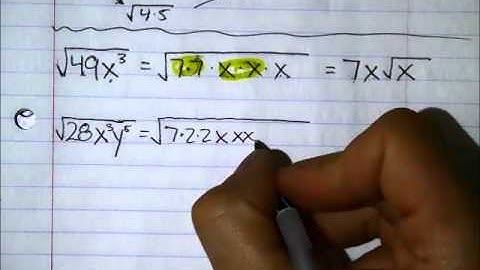 √4·5
√49x³ = √7·7·x·x·x = 7x√x
√28x³y⁵ = √7·2·2xxx